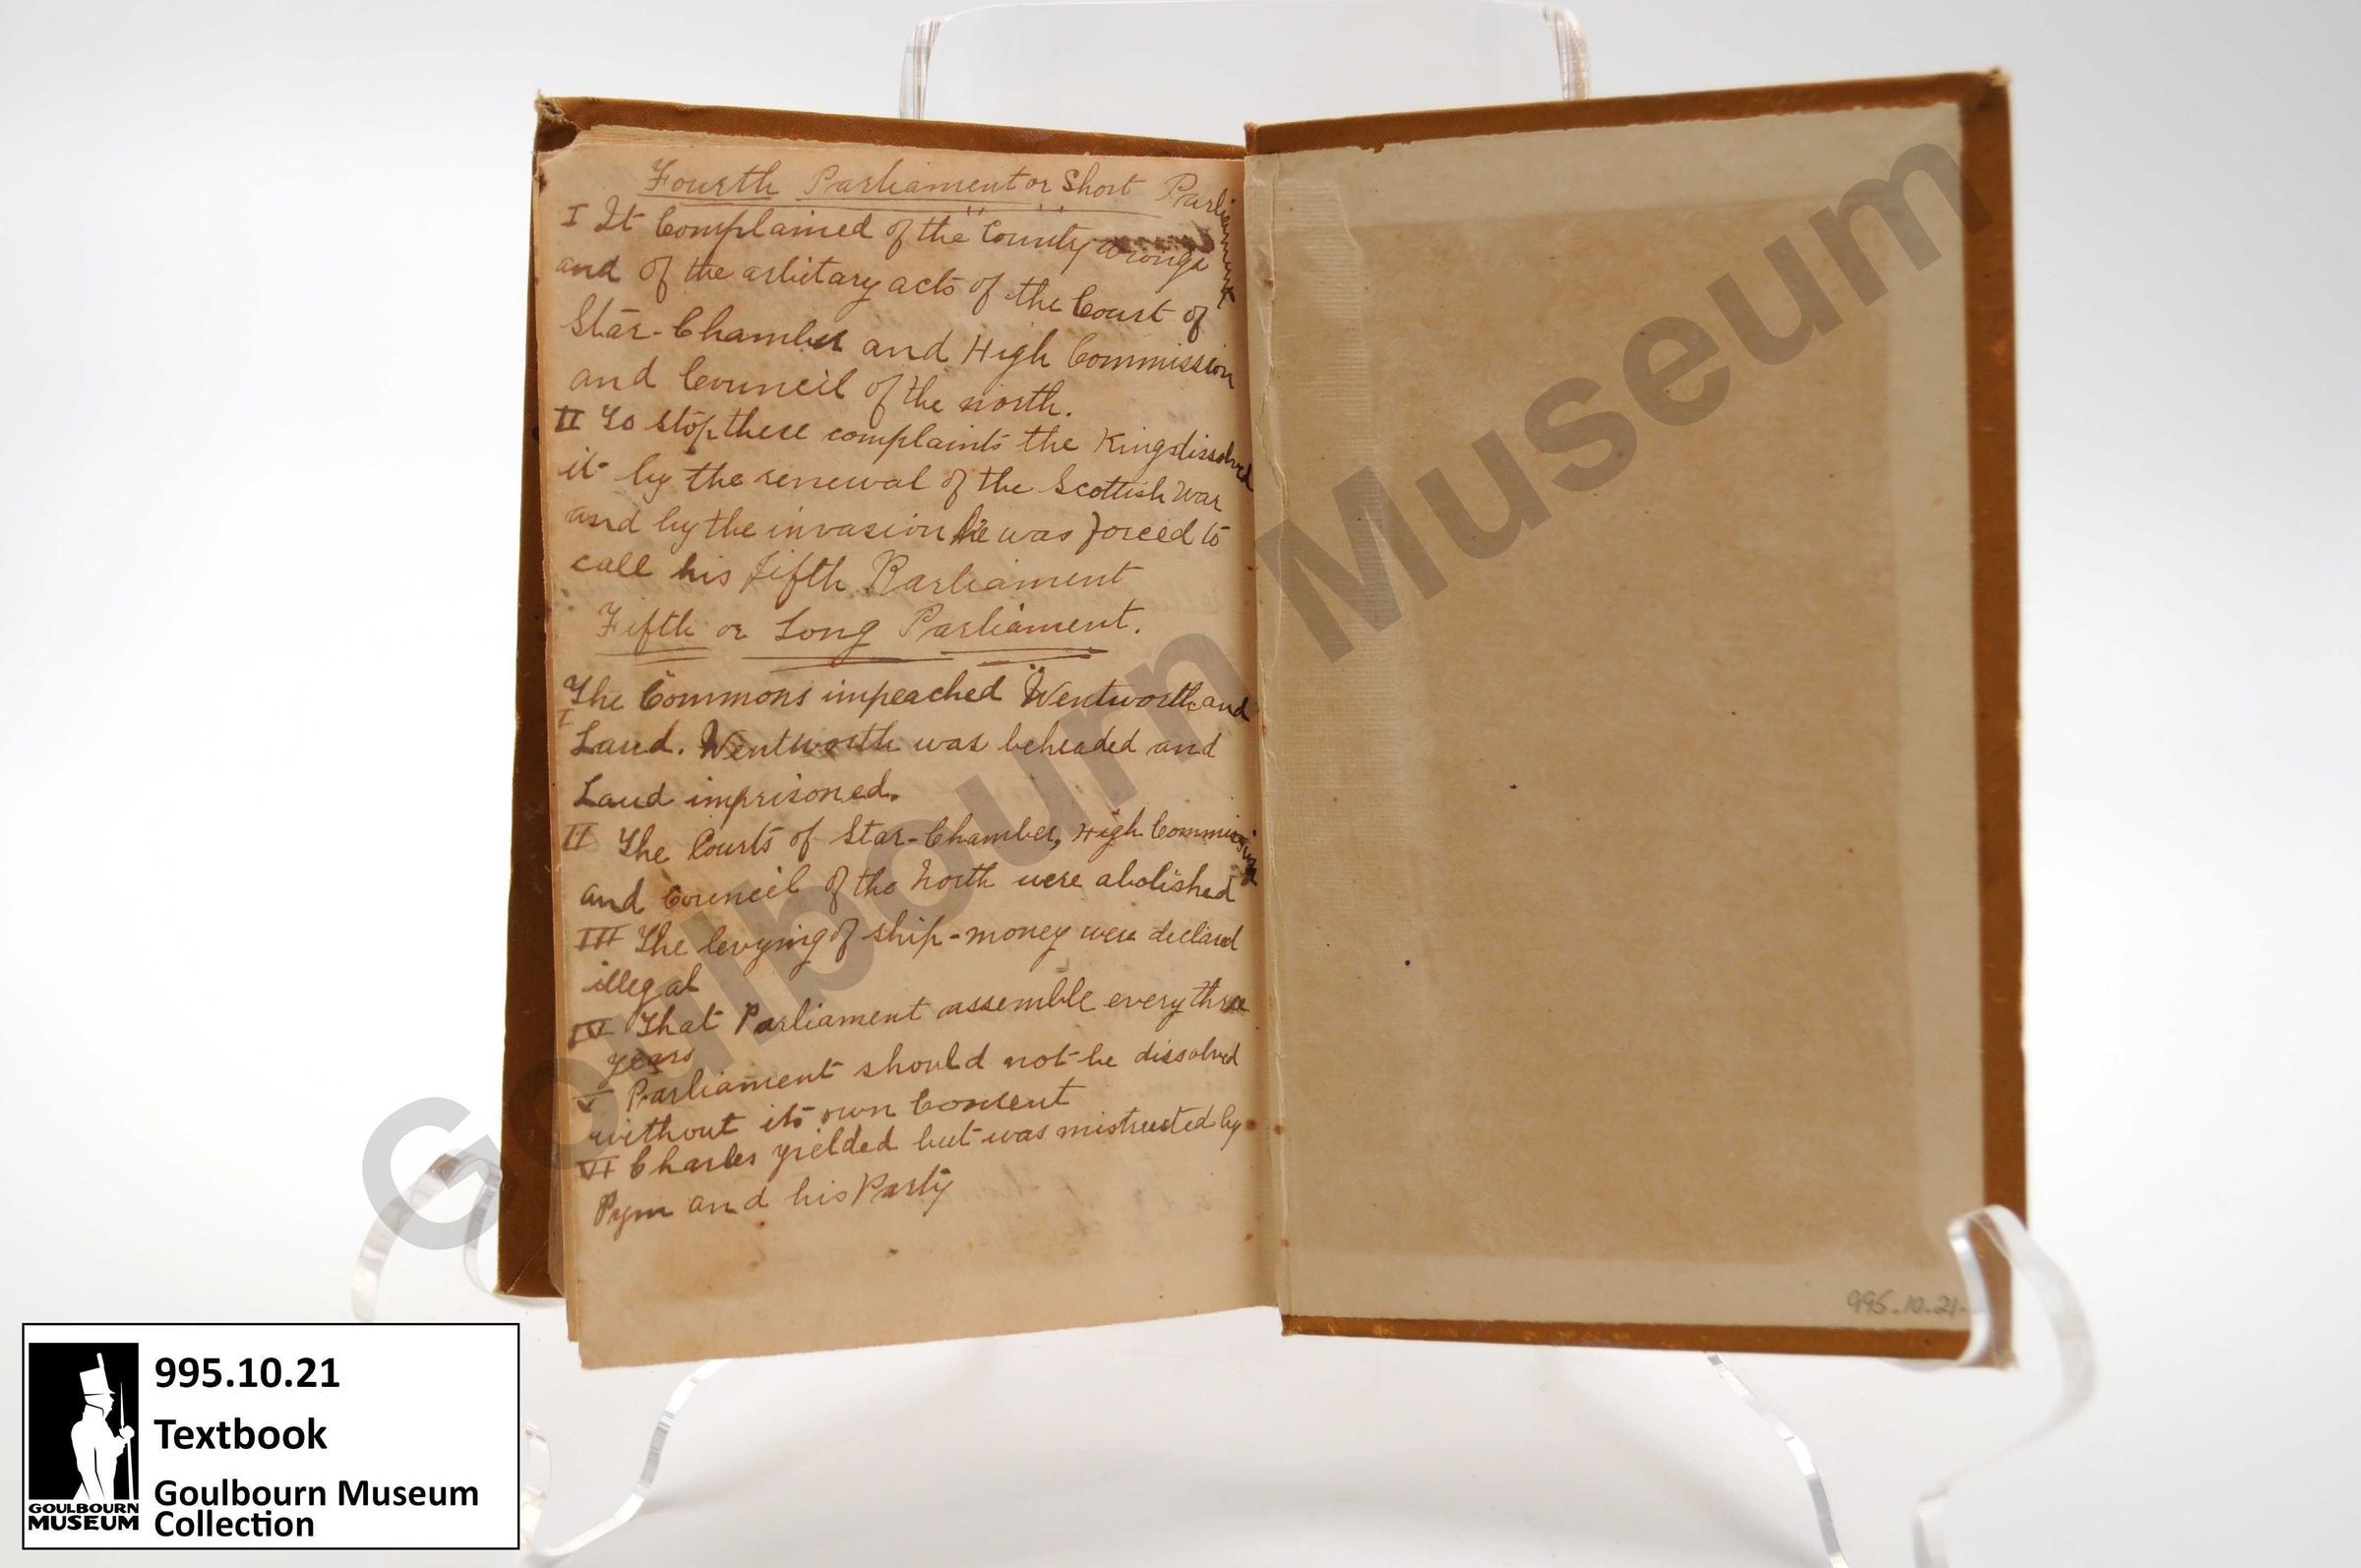 Fourth Parliament or Short Parliament
I It Complained of the County wrongs
and of the arbitary acts of the Court of
Star-Chamber and High Commission
and Council of the north.
II To stop these complaints the King dissolved
it by the renewal of the Scottish War
and by the invasion he was forced to
call his fifth Parliament
Fifth or Long Parliament.
The Commons impeached Wentworth and
I
Laud. Wentworth was beheaded and
Laud imprisoned.
II The Courts of Star-Chamber, High Commission
and Council of the North were abolished
III The levying of ship-money were declared
illegal
IV That Parliament assemble every three
years
V Parliament should not be dissolved
without its own Consent
VI Charles yielded but was mistrusted by
Pym and his Party
995.10.21
Goulbourn Museum
995.10.21
Textbook
Goulbourn Museum
Collection
GOULBOURN
MUSEUM